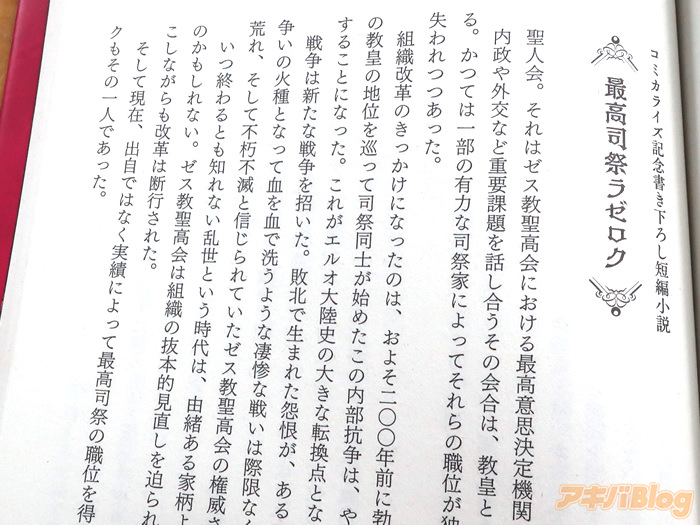 コミカライズ記念書き下ろし短編小説
最高司祭ラゼロク
聖人会。それはゼス教聖高会における最高意思決定機関
内政や外交など重要課題を話し合うその会合は、教皇と
る。かつては一部の有力な司祭家によってそれらの職位が独
失われつつあった。
組織改革のきっかけになったのは、およそ二〇〇年前に勃
の教皇の地位を巡って司祭同士が始めたこの内部抗争は、や
することになった。これがエルオ大陸史の大きな転換点とな
戦争は新たな戦争を招いた。敗北で生まれた怨恨が、ある
争いの火種となって血を血で洗うような凄惨な戦いは際限なく
荒れ、そして不朽不滅と信じられていたゼス教聖高会の権威さ
いつ終わるとも知れない乱世という時代は、由緒ある家柄よ
のかもしれない。ゼス教聖高会は組織の抜本的見直しを迫られ
こしながらも改革は断行された。
そして現在、出自ではなく実績によって最高司祭の職位を得
クもその一人であった。
アキバBlog